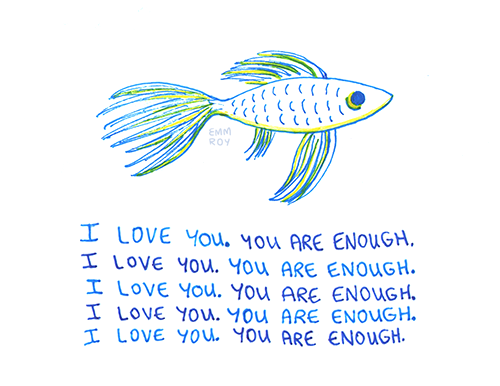 EMM
ROY
I LOVE YOU. YOU ARE ENOUGH.
I LOVE YOU. YOU ARE ENOUGH.
I LOVE YOU. YOU ARE ENOUGH.
I LOVE YOU. YOU ARE ENOUGH.
I LOVE YOU. YOU ARE ENOUGH.